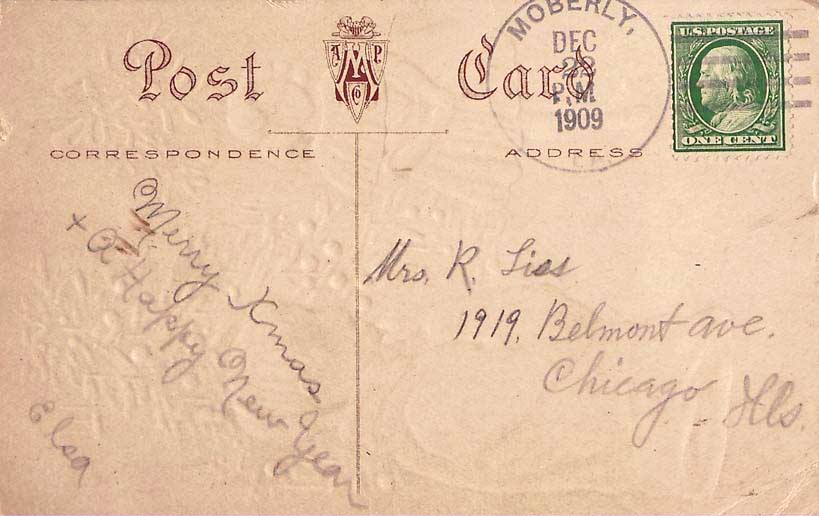 Post Card
MOBERLY,
DEC
22
P.M.
1909
U.S. POSTAGE
ONE CENT
CORRESPONDENCE
ADDRESS
Merry Xmas
+ A Happy New Year
Elsa
Mrs. R.
1919, Belmont ave.
Chicago Ills.